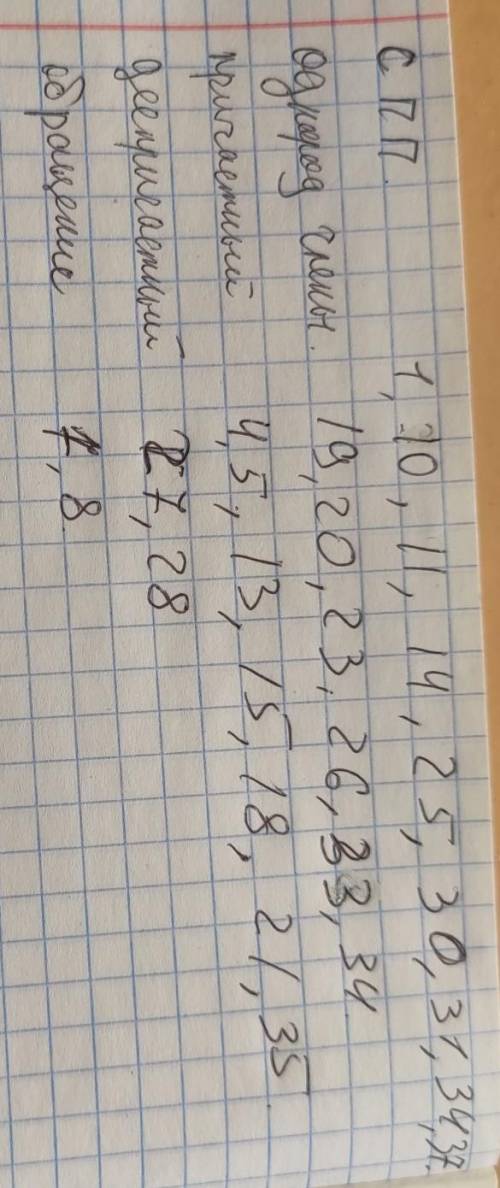 СПП. 1, 10, 11, 14, 25, 30, 31, 34, 37.
однород члены. 19, 20, 23, 26, 33, 34
причастный 4, 5, 13, 15, 18, 21, 35
деепричастный 27, 28
обращение 7, 8